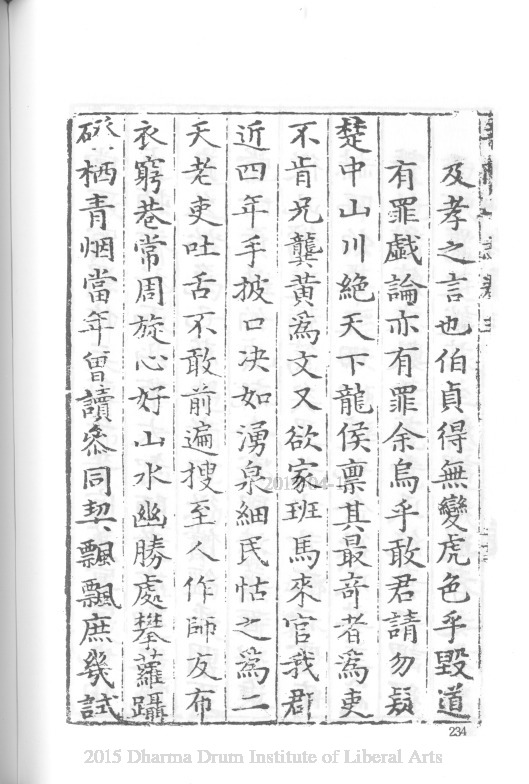 及孝之言也伯貞得無變虎色乎毀道
有罪戯論亦有罪余烏乎敢君請勿疑
楚中山川絶天下龍侯禀其最竒者為吏
不肯兄龔黄為文又欲家班馬來官我郡
近四年手披口决如湧泉細民怙之為二
天老吏吐舌不敢前遍搜至人作師友布
衣窮巷常周旋心好山水幽勝處攀蘿躡
磴栖青烟當年曽讀叅同契飄飄庶幾試
234
2015 Dharma Drum Institute of Liberal Arts